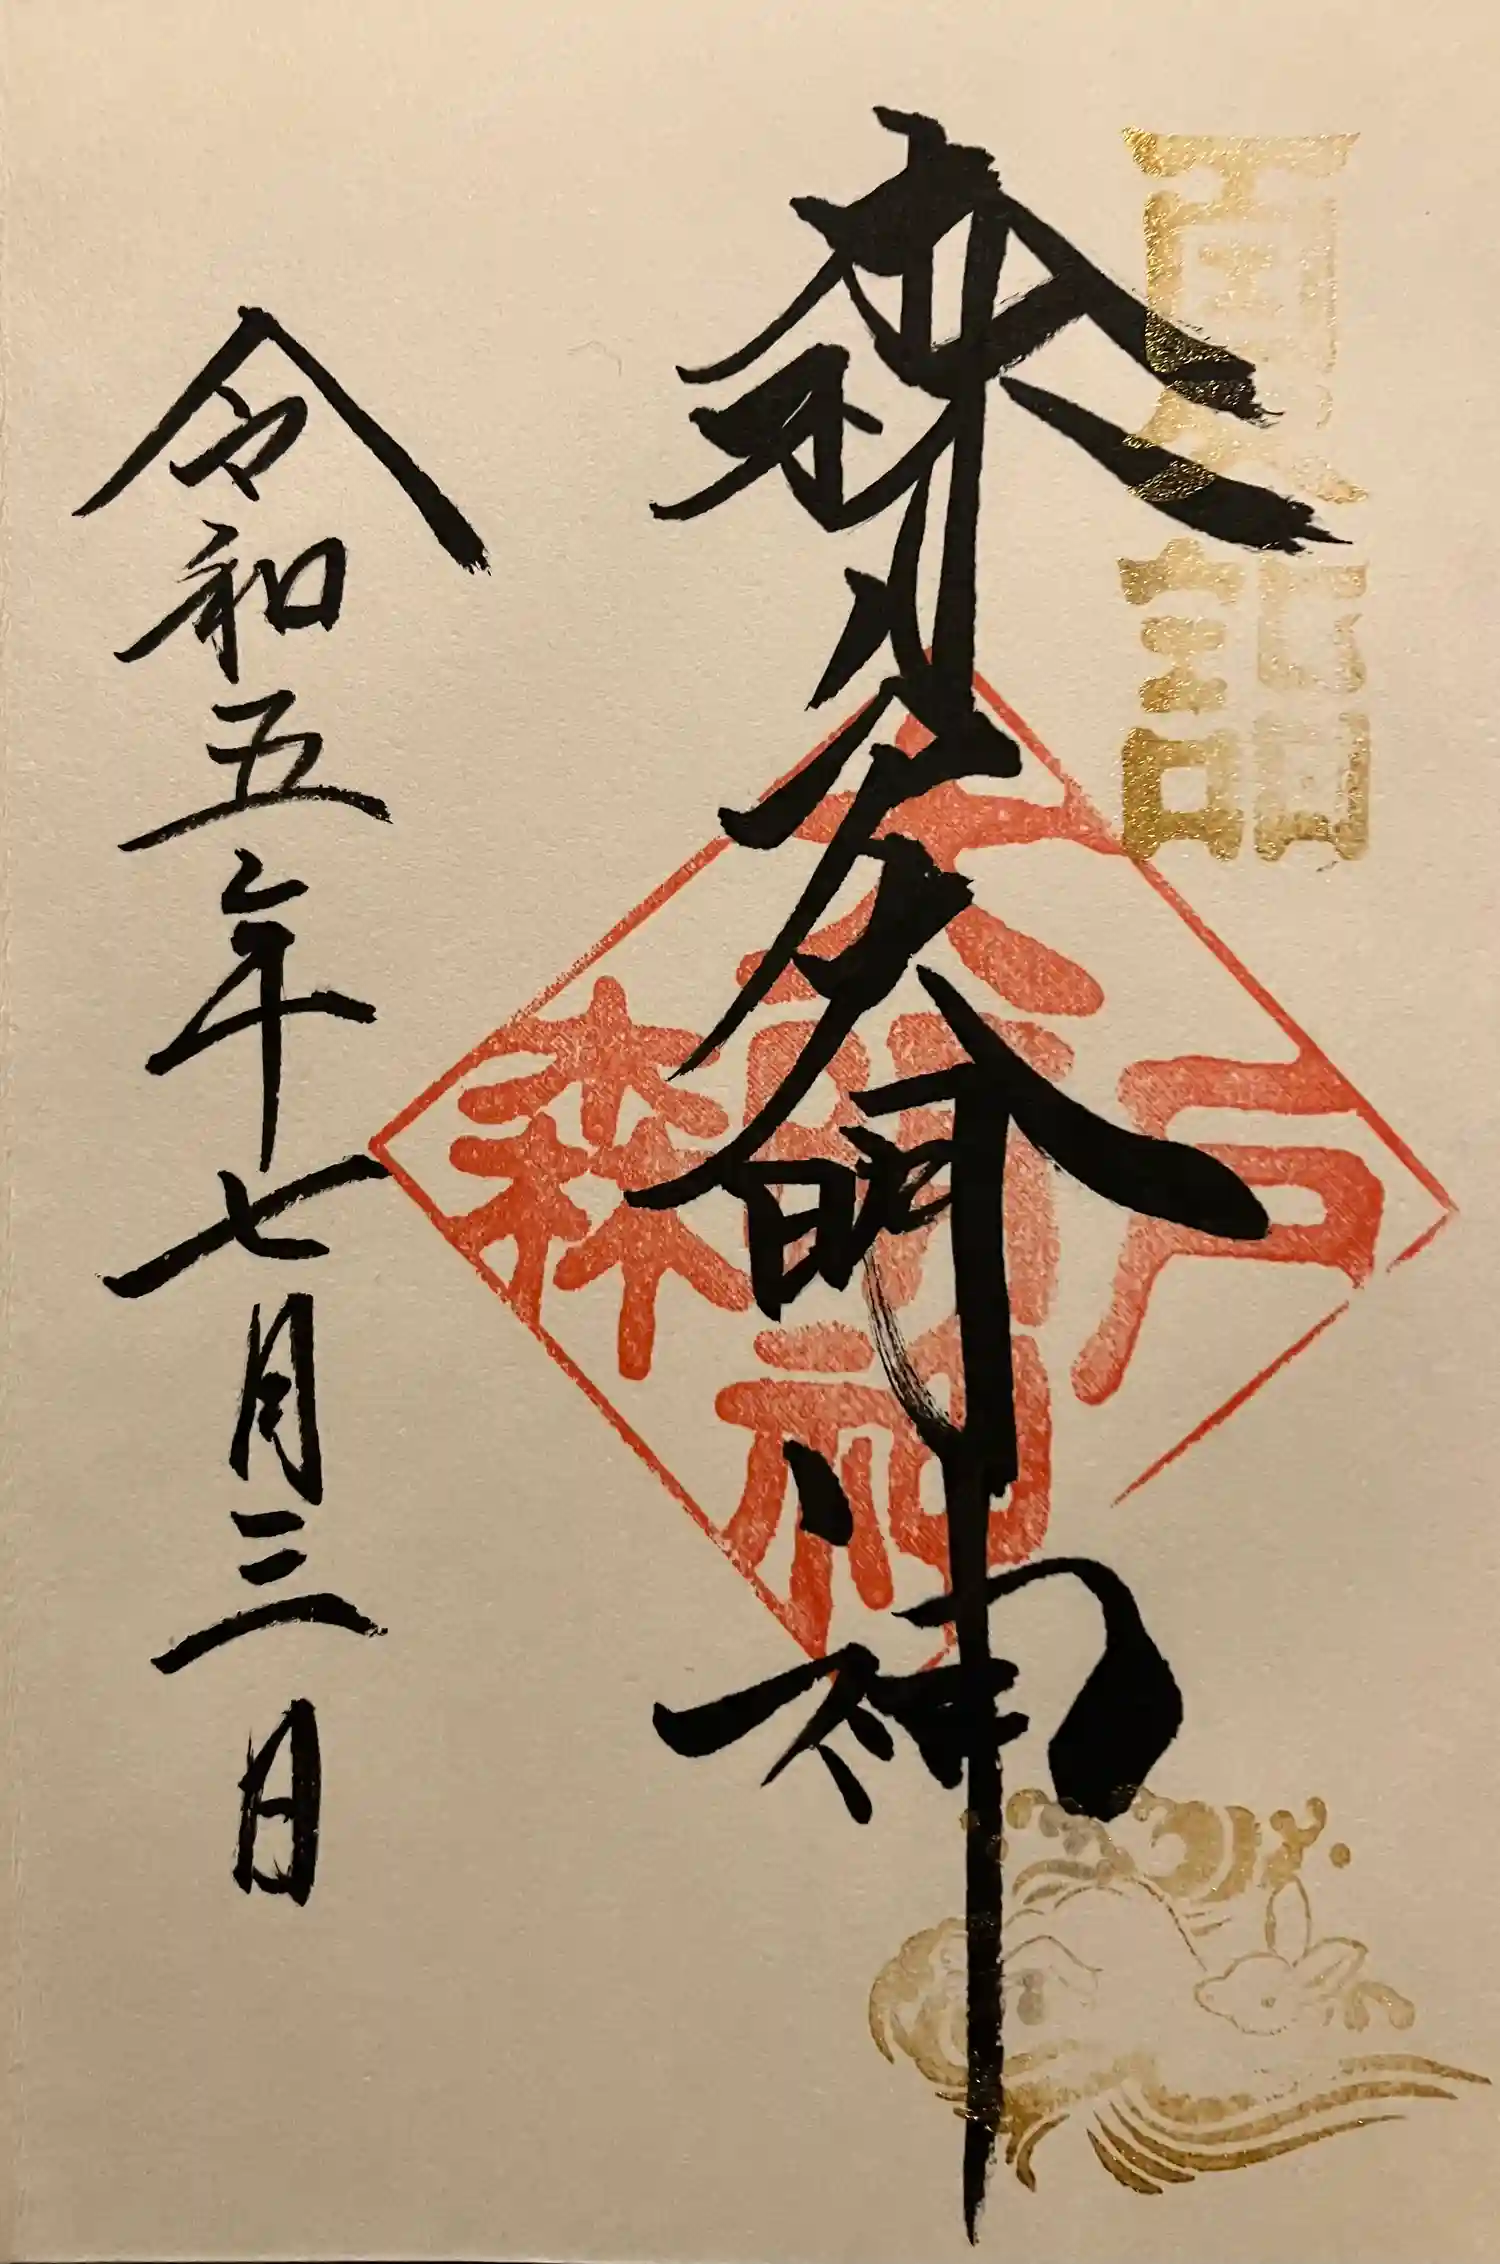 夏詣
森戸大明神
森戸大明神
令和五年七月三日